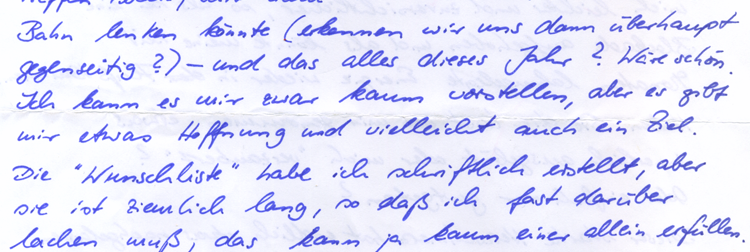 Bahn lenken könnte (erkennen wir uns dann überhaupt
gegenseitig?) – und das alles dieses Jahr? Wäre schön.
Ich kann es mir zwar kaum vorstellen, aber es gibt
mir etwas Hoffnung und vielleicht auch ein Ziel.
Die "Wunschliste" habe ich schriftlich erstellt, aber
sie ist ziemlich lang, so daß ich fast darüber
lachen muß, das kann ja kaum einer allein erfüllen